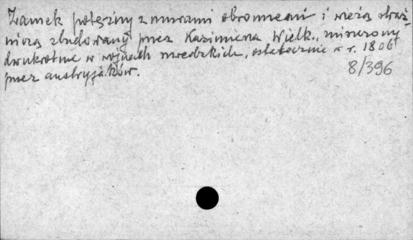 Zamek potężny z murami obronnemi i wieżą straż-
niczą zbudowany przez Kazimierza Wielk., niszczony
dwukrotnie w wojnach szwedzkich, ostatecznie w r. 1806
przez austryjaków.
8/396